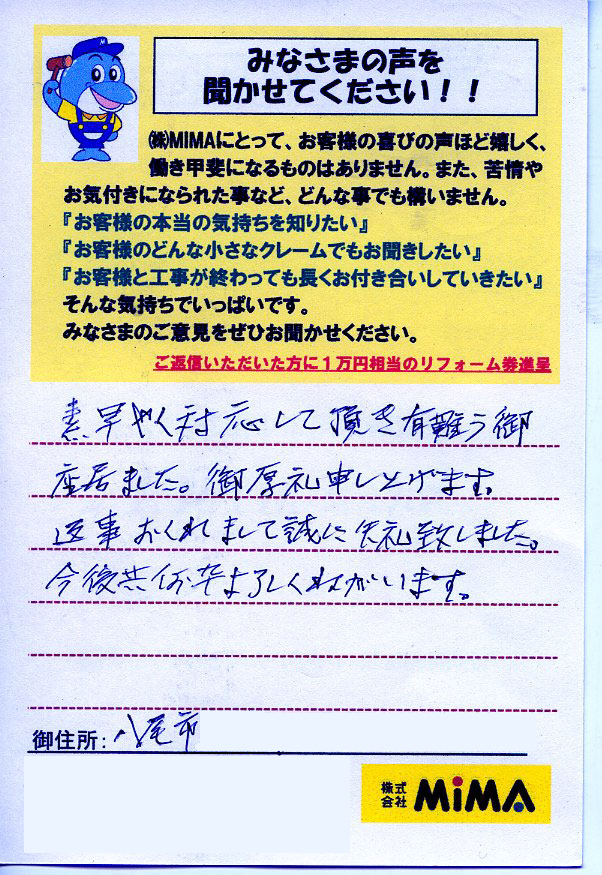 みなさまの声を
聞かせてください！！
㈱MIMAにとって、お客様の喜びの声ほど嬉しく、
働き甲斐になるものはありません。また、苦情や
お気付きになられた事など、どんな事でも構いません。
『お客様の本当の気持ちを知りたい』
『お客様のどんな小さなクレームでもお聞きしたい』
『お客様と工事が終わっても長くお付き合いしていきたい』
そんな気持ちでいっぱいです。
みなさまのご意見をぜひお聞かせください。
ご返信いただいた方に１万円相当のリフォーム券進呈
素早やく対応して頂き有難う御
座居ました。御厚礼申し上げます。
返事おくれまして誠に失礼致しました。
今後共何卒よろしくねがいます。
御住所：八尾市
株式会社 MiMA